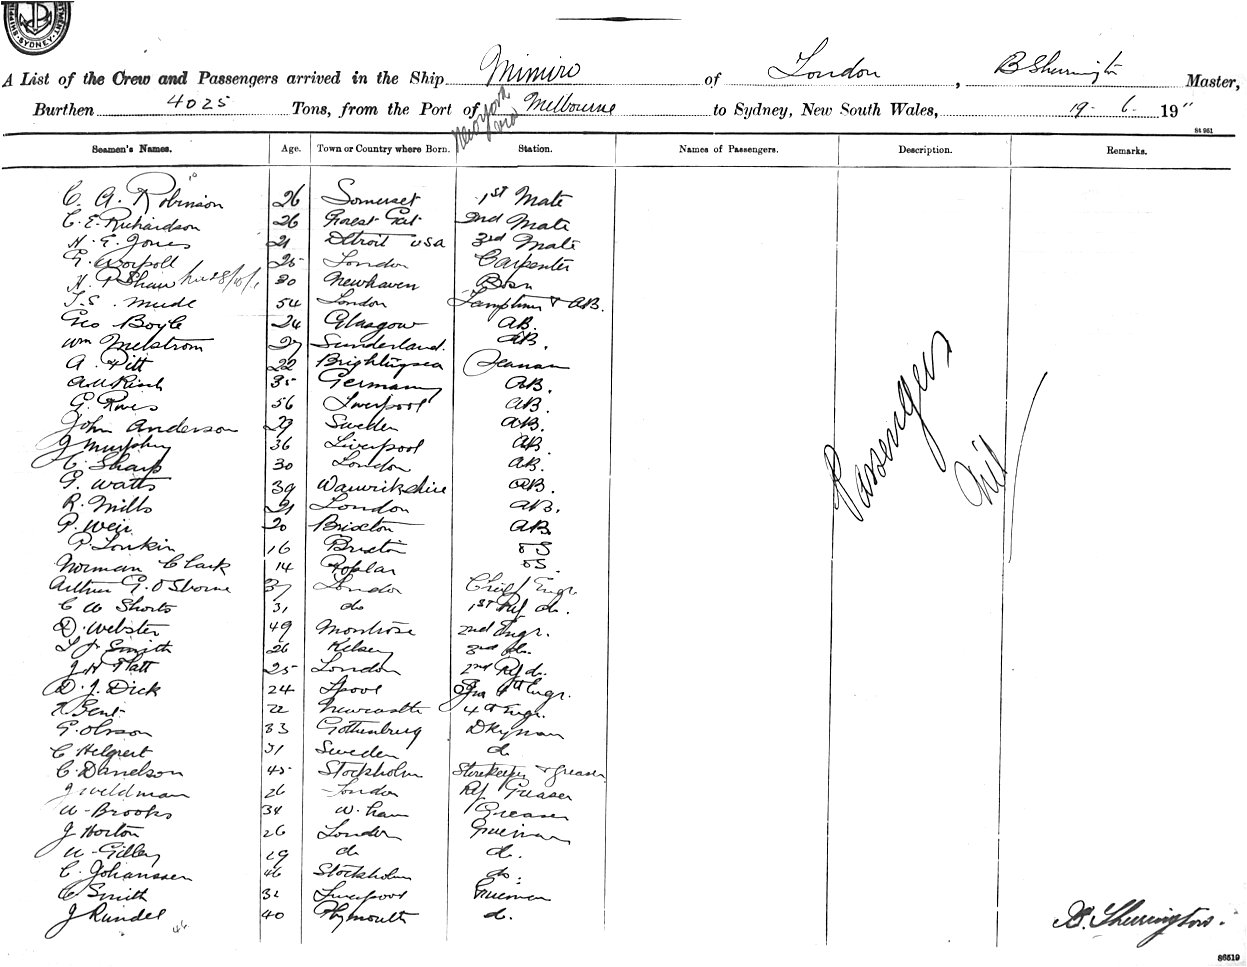 SYDNEY
A List of the Crew and Passengers arrived in the Ship Mimiro of London, B Sherrington Master,
Burthen 4025 Tons, from the Port of New York via Melbourne to Sydney, New South Wales, 19-6-19"
St 951
Seamen's Names. Age. Town or Country where Born. Station. Names of Passengers. Description. Remarks.
C. A. Robinson 26 Somerset 1st Mate
C. E. Richardson 26 Forest Gat 2nd Mate
H. E. Jones 21 Detroit USA 3rd Mate
G. Worpoll 25 London Carpenter
H. P Shaw 30 Newhaven Bosn
T. S. Mude 54 London Lamptrimr & AB.
Geo Boyle 24 Glasgow AB.
Wm Melstrom 27 Sunderland. AB.
A. Pitt 22 Brightlingsea Seaman
35 Germany AB.
G. 56 Liverpool AB.
John Anderson 29 Sweden AB.
J Murphy 36 Liverpool AB.
C. Sharp 30 London AB.
G. Watts 39 Warwrikshire AB.
R. Mills 21 London AB.
P. Weir 20 Brixton AB.
P. Lonkin 16 Brixton OS
Norman Clark 14 Poplar OS.
Arthur G. Osborne 37 London Chief Engr
C W Shorts 31 do 1st Ref do.
D. Webster 49 Montrose 2nd Engr.
Smith 26 Kelsey 3rd do.
J H Platt 25 London 2nd Ref do.
D. J. Dick 24 Lpool Jnr 4th Engr.
Bent 22 Newcastle 4th Engr.
G. Olsson 33 Gottenburg Dkyman
C Helgert 31 Sweden do
C. Danelson 45 Stockholm Storekeeper & Greaser
J Weldman 26 London Ref Greaser
W. Brooks 34 W. Ham Greaser
J Horton 26 London Fireman
W. Gilley 29 do do.
C. Johanssen 46 Stockholm do.
C Smith 32 Liverpool Fireman
J Rundel 40 Plymouth do.
Passengers
Nil
B. Sherrington.
86519